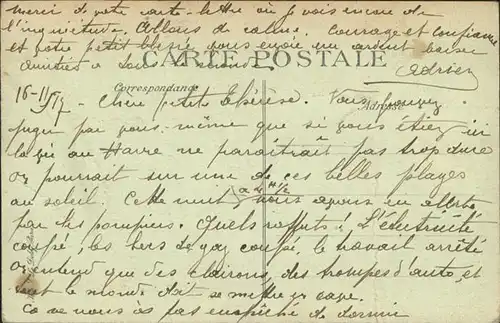 Merci de votre carte-lettre où je vois encore de
l'inquiétude. Allons du calme. Courage et confiance
et votre petit blessé vous envoie un ardent baiser
Amitiés à tout le monde
Adrien
CARTE POSTALE
Correspondance
Adresse
16-11/17 - Chère petite Thérèse. Vous pouvez
juger par vous même que si vous étiez ici
la vie au Havre ne paraîtrait pas trop dure
On pourrait sur une de ces belles plages
au soleil. Cette nuit à 4h 1/2 nous avons eu alerte
par les pompiers. Quels raffuts! L'électricité
coupé, les becs de gaz coupé le travail arrêté
On entend que des clairons, des trompes d'auto, et
tout le monde doit se mettre en cave.
Ça ne nous a pas empêché de dormir